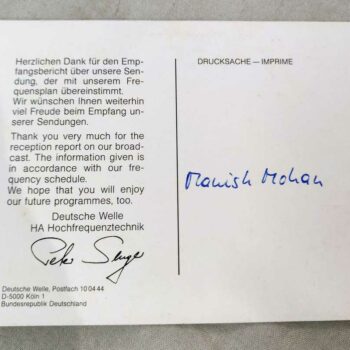 Herzlichen Dank für den Emp-
fangsbericht über unsere Sen-
dung, der mit unserem Fre-
quensplan übereinstimmt.
Wir wünschen Ihnen weiterhin
viel Freude beim Empfang un-
serer Sendungen.
Thank you very much for the
reception report on our broad-
cast. The information given is
in accordance with our fre-
quency schedule.
We hope that you will enjoy
our future programmes, too.
Deutsche Welle
HA Hochfrequenztechnik
Peter Senger
Deutsche Welle, Postfach 10 04 44
D-5000 Köln 1
Bundesrepublik Deutschland
DRUCKSACHE — IMPRIME
Manish Mohan